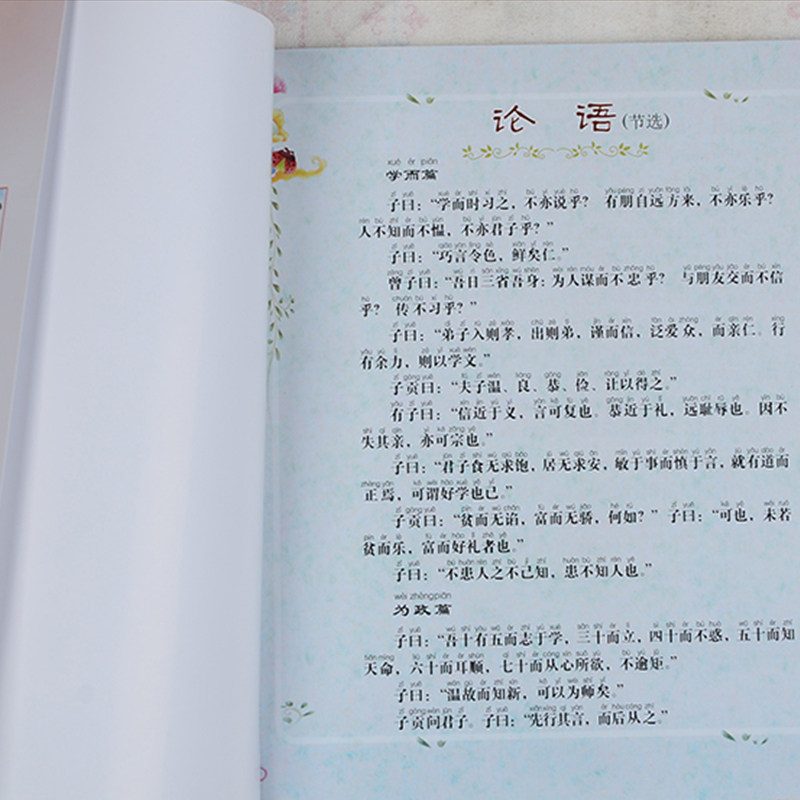 论 语(节选)
xué ér piān
学而篇
子曰：“学而时习之，不亦说乎？ 有朋自远方来，不亦乐乎？
人不知而不愠，不亦君子乎？”
子曰：“巧言令色，鲜矣仁。”
曾子曰：“吾日三省吾身：为人谋而不忠乎？ 与朋友交而不信
乎？ 传不习乎？”
子曰：“弟子入则孝，出则弟，谨而信，泛爱众，而亲仁。行
有余力，则以学文。”
子贡曰：“夫子温、良、恭、俭、让以得之。”
有子曰：“信近于义，言可复也。恭近于礼，远耻辱也。因不
失其亲，亦可宗也。”
子曰：“君子食无求饱，居无求安，敏于事而慎于言，就有道而
正焉，可谓好学也已。”
子贡曰：“贫而无谄，富而无骄，何如？”子曰：“可也，未若
贫而乐，富而好礼者也。”
子曰：“不患人之不己知，患不知人也。”
wéi zhèng piān
为政篇
子曰：“吾十有五而志于学，三十而立，四十而不惑，五十而知
天命，六十而耳顺，七十而从心所欲，不逾矩。”
子曰：“温故而知新，可以为师矣。”
子贡问君子。子曰：“先行其言，而后从之。”